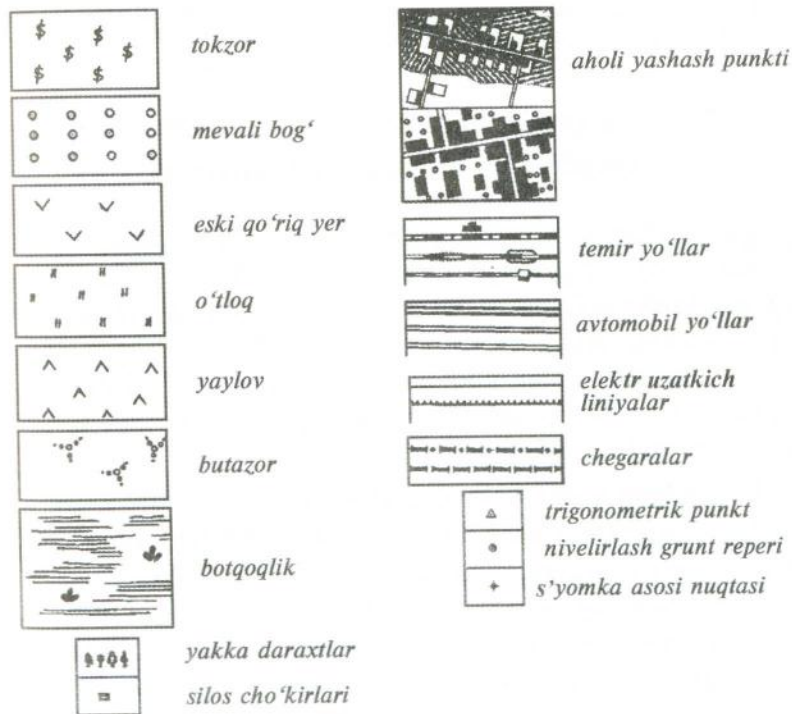 tokzor
mevali bog‘
eski qo‘riq yer
o‘tloq
yaylov
butazor
botqoqlik
yakka daraxtlar
silos cho‘kirlari
aholi yashash punkti
temir yo‘llar
avtomobil yo‘llar
elektr uzatkich
liniyalar
chegaralar
trigonometrik punkt
nivelirlash grunt reperi
s’yomka asosi nuqtasi